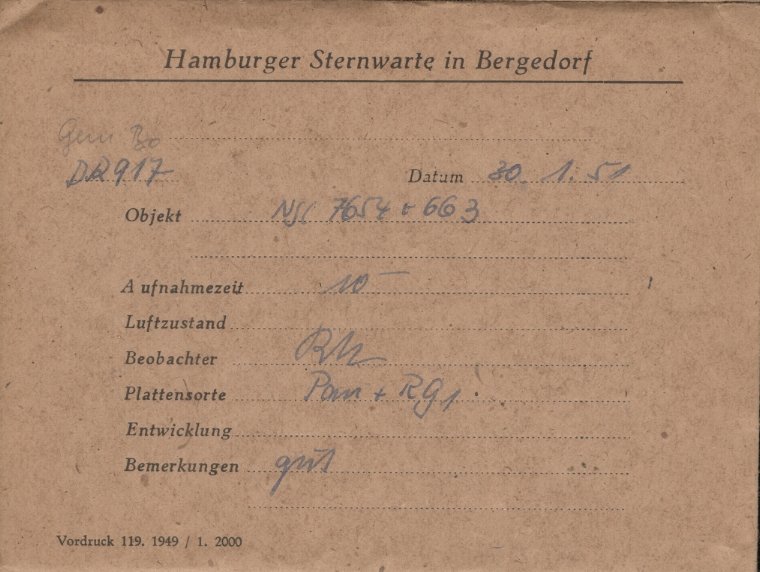 Hamburger Sternwarte in Bergedorf
DR917
Datum 30. 1. 51
Objekt NGC 7654 + 663
Aufnahmezeit 10
Luftzustand
Beobachter
Plattensorte Pan + RG1
Entwicklung
Bemerkungen gut
Vordruck 119. 1949 / 1. 2000